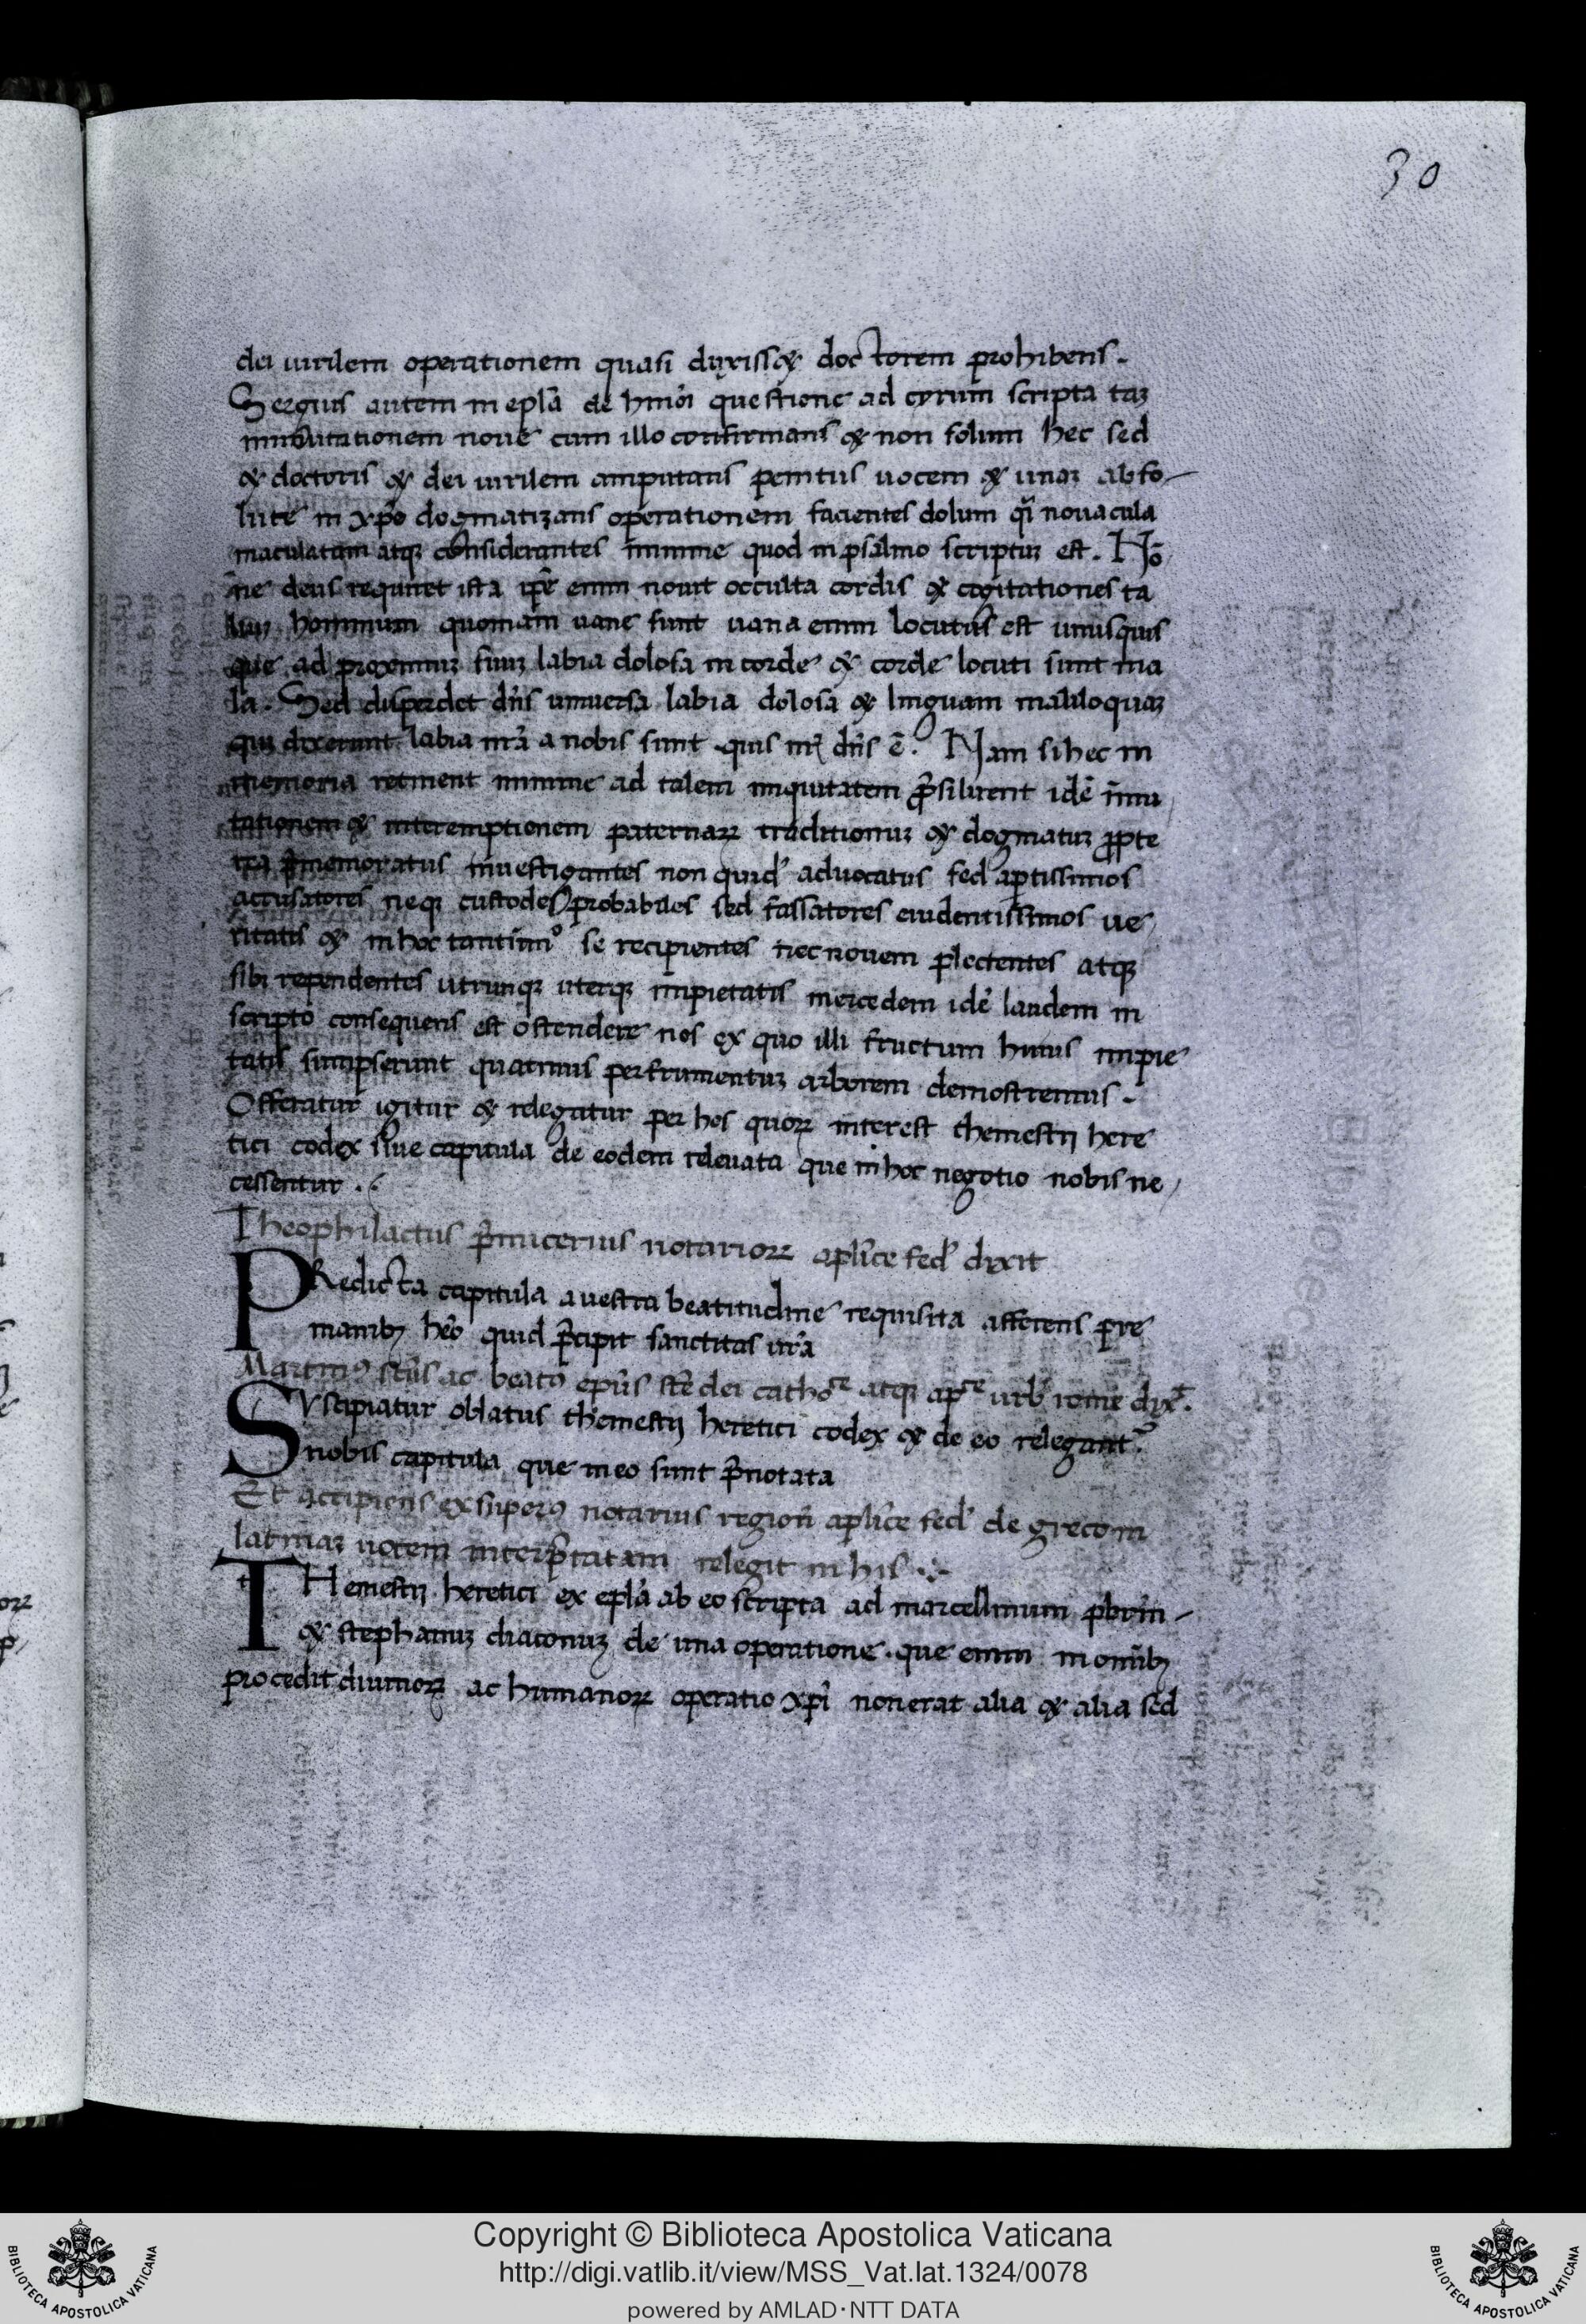 30
dei uirilem operationem quasi duxiss& doctorem prohibens.
Sergius autem in epl̄a de hmōi questione ad cyrum scripta taꝫ
inmutationem noue cum illo confirmans & non solum hec sed
& doctoris & dei uirilem amputans penitus uocem & unaꝫ abso-
lute in xp̄o dogmatizans operationem facientes dolum q̄i nouacula
maculatam atqꝫ considerantes minime quod in psalmo scriptuꝫ est. Nō
ne deus requiret ista ip̄e enim nouit occulta cordis & cogitationes ta
liuꝫ hominum quoniam uane sunt uana enim locutus est unusquis
que ad proximuꝫ suuꝫ labia dolosa in corde & corde locuti sunt ma
la. Sed disperdet dn̄s uniuersa labia dolosa & linguam maliloquaꝫ
qui dixerunt labia nr̄a a nobis sunt quis nr̄ dn̄s ē. Nam si hec in
memoria retinent minime ad talem iniquitatem p̄silirent idē inmu
tationem & interemptionem paternaꝝ traditionuꝫ & dogmatuꝫ ꝓpte
rea p̄memoratus inuestigantes non quid' aduocatus sed aptissimos
accusatores neqꝫ custodes probabiles sed fassatores euidentissimos ue
ritatis & in hoc tantūm⁰ se recipientes nec nouem plectentes atqꝫ
sibi rependentes utrunqꝫ uterqꝫ impietatis mercedem idē laudem in
scripto consequens est ostendere nos ex quo illi fructum huius impie
tatis sumpserunt quatinus per frumentuꝫ arborem demostremus.
Offeratur igitur & relegatur per hos quoꝝ interest themestij here
tici codex siue capitula de eodem releuata que in hoc negotio nobis ne
cessentur.
Theophilactus p̄micerius notarioꝝ aplīce sed' dixit
PRedicta capitula a uestra beatitudine requisita afferens pre
manibꝫ hēo quid p̄cipit sanctitas ur̄a
Martinꝰ scūs ac beatꝰ ep̄us scē dei cathoᶜᵉ atqꝫ apᶜᵉ urb' rome dix̄.
SVscipiatur oblatus themestij heretici codex & de eo relegant᷑
nobis capitula que in eo sunt p̄notata
Et accipiens exsuperꝰ notarius region̄ aplīce sed' de greco in
latinaꝫ uocem interp̄tatam relegit in his
THemestij heretici ex epl̄a ab eo scripta ad marcellinum pbrm̄-
& stephanuꝫ diaconuꝫ de una operatione. que enim in om̄ibꝫ
procedit diuinoꝝ ac humanoꝝ operatio xp̄i non erat alia & alia sed
Copyright © Biblioteca Apostolica Vaticana
http://digi.vatlib.it/view/MSS_Vat.lat.1324/0078
powered by AMLAD·NTT DATA
BIBLIOTECA APOSTOLICA VATICANA
BIBLIOTECA APOSTOLICA VATICANA